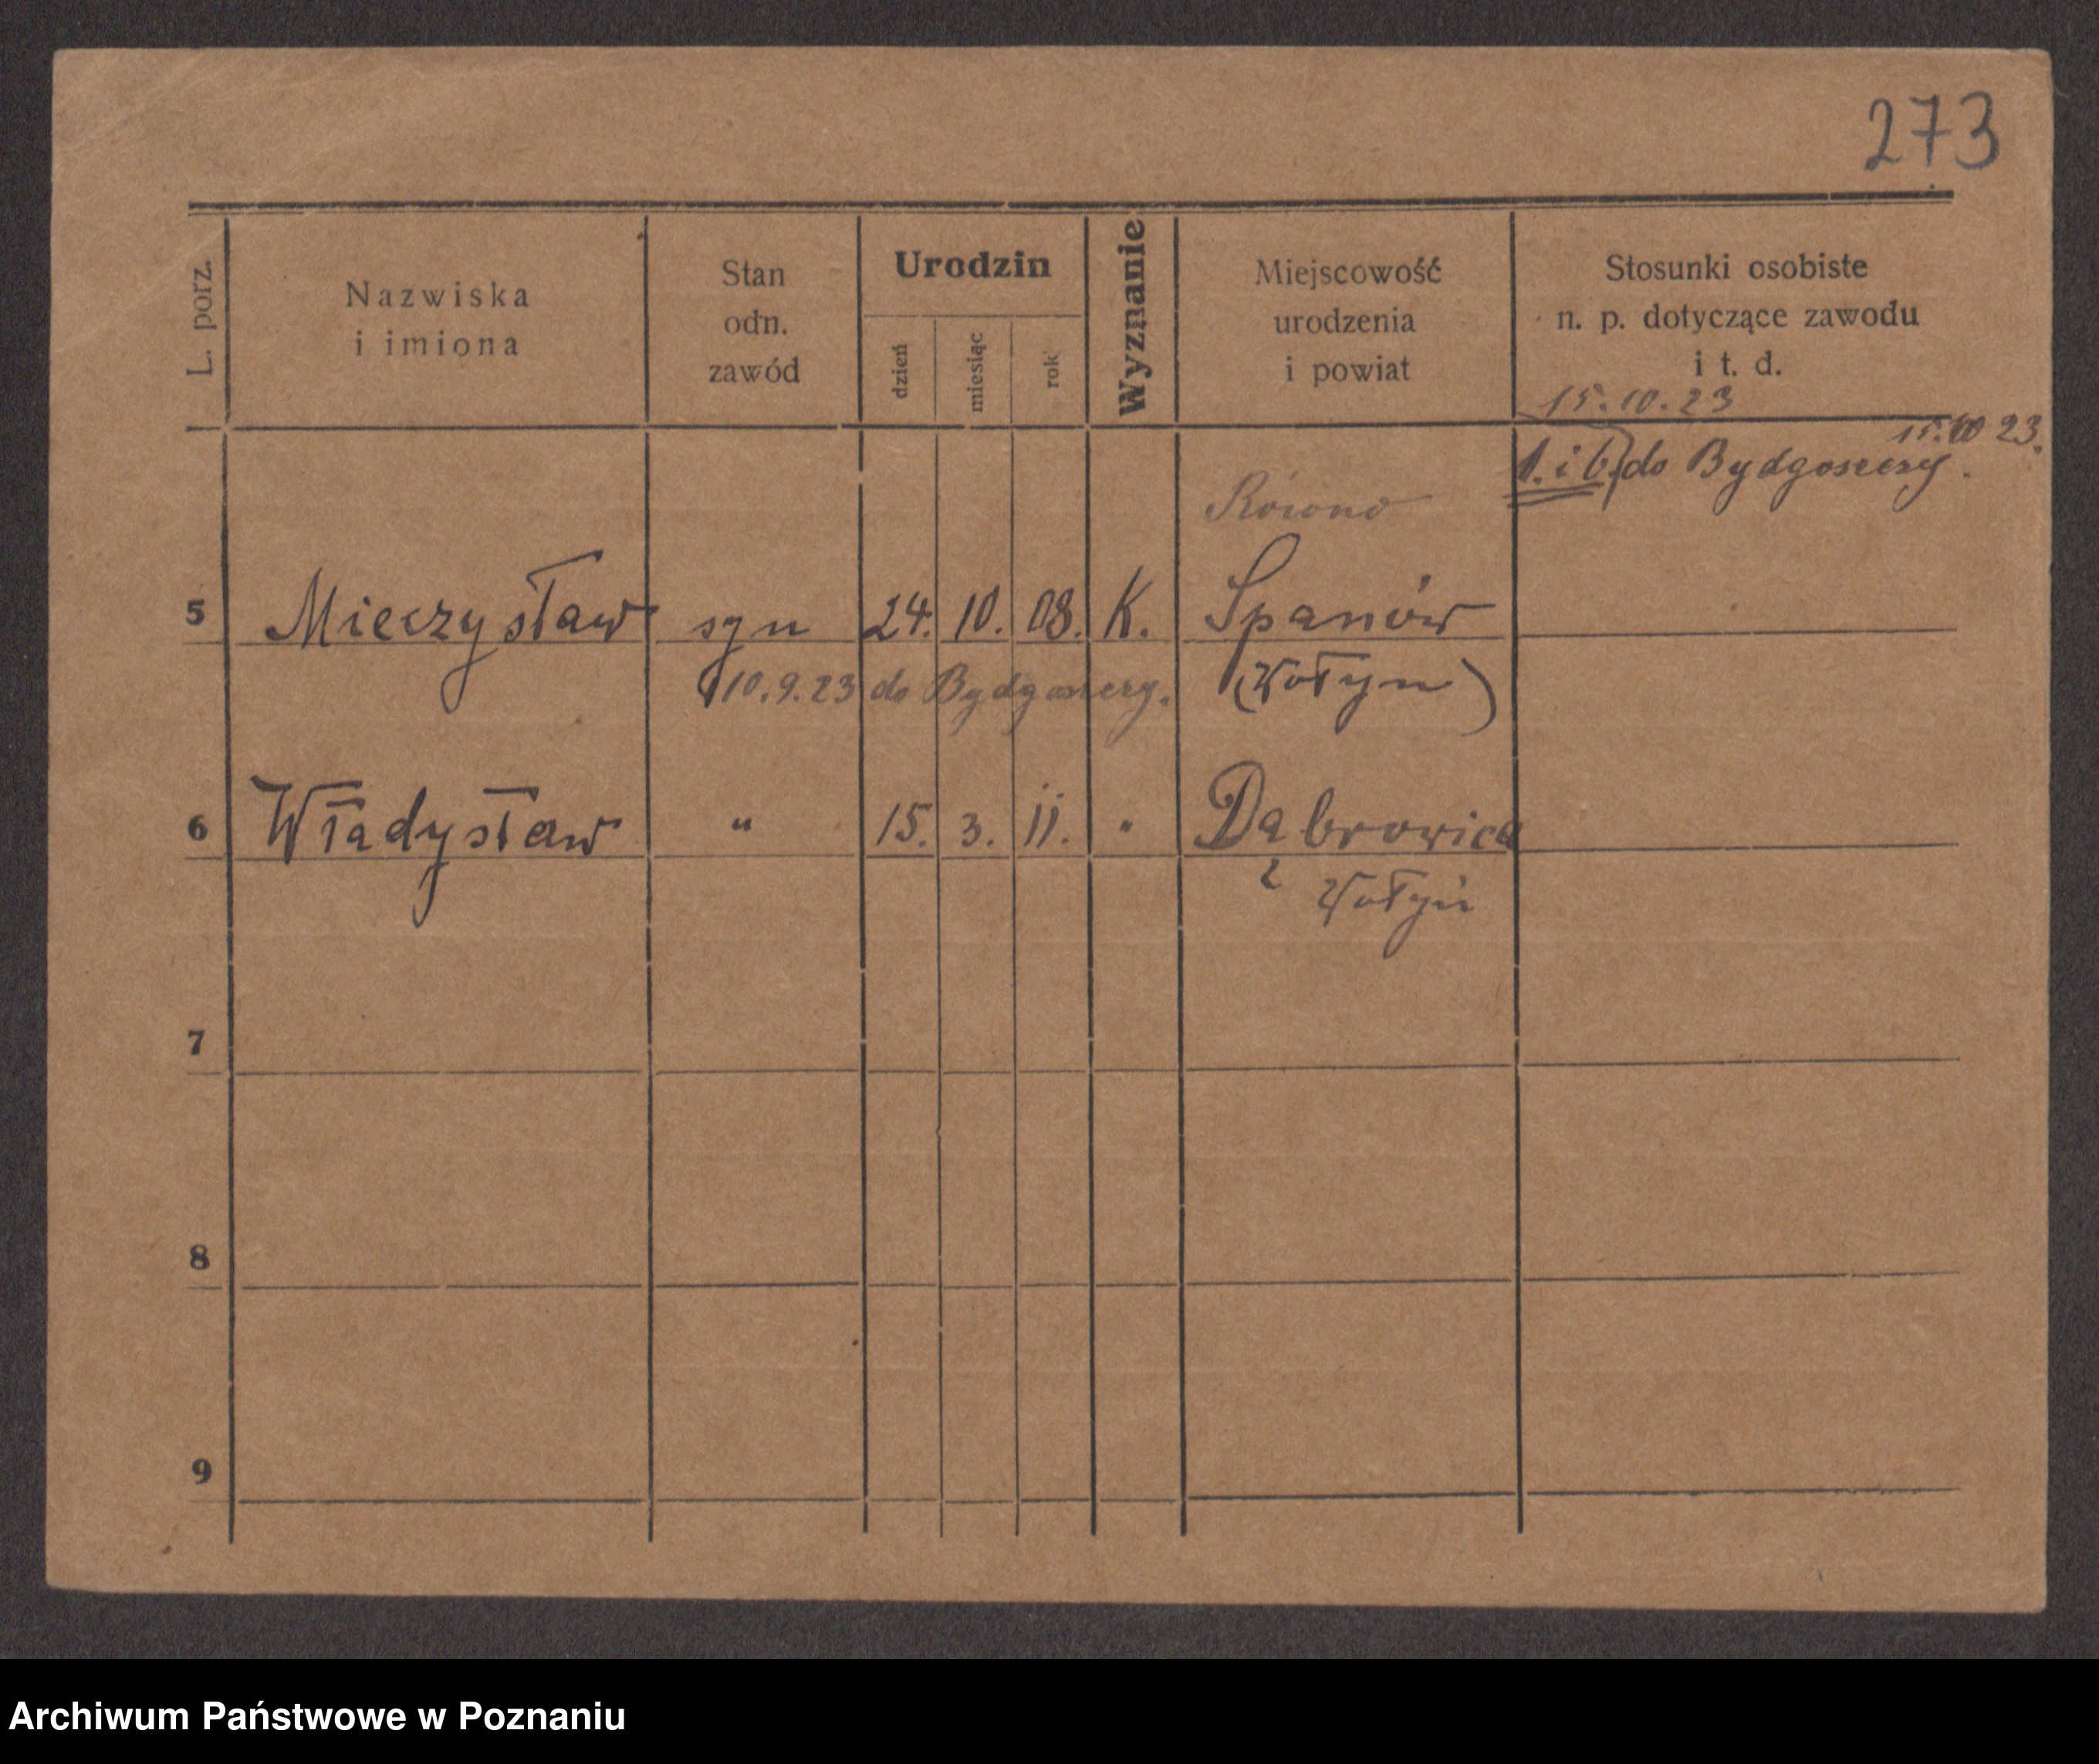 273
L. porz.
Nazwiska
i imiona
Stan
odn.
zawód
Urodzin
dzień
miesiąc
rok
Wyznanie
Miejscowość
urodzenia
i powiat
Stosunki osobiste
n. p. dotyczące zawodu
i t. d.
15.10.23
15.10 23.
1. i 6. do Bydgoszczy.
Równo
5 Mieczysław syn 24. 10. 08. K. Spanów
10.9.23 do Bydgoszczy. (Wołyń)
6 Władysław " 15. 3. 11. " Dąbrowica
Wołyń
7
8
9
Archiwum Państwowe w Poznaniu